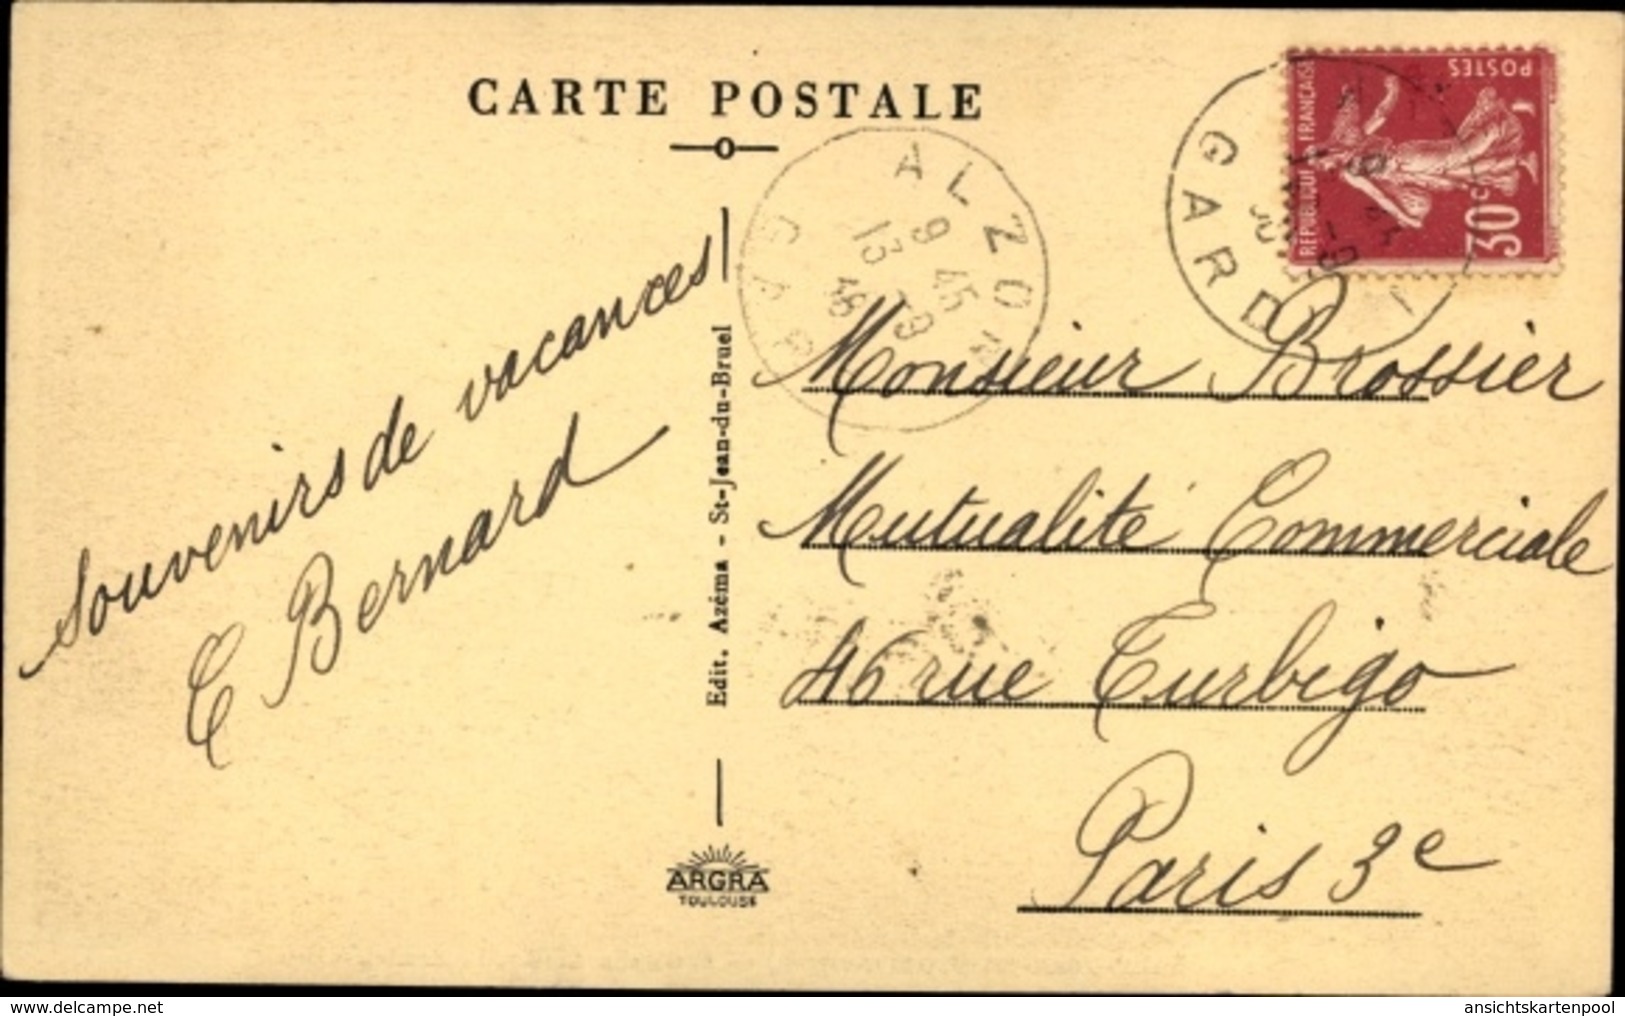 CARTE POSTALE
POSTES
REPUBLIQUE FRANÇAISE
30c
GARD
ALZON
GAR
9 45
13 -9
36
Souvenirs de vacances
E Bernard
Edit. Azéma - St-Jean-du-Bruel
Monsieur Brossier
Mutualité Commerciale
46 rue Turbigo
Paris 3e
ARGRA
TOULOUSE
www.delcampe.net
ansichtskartenpool